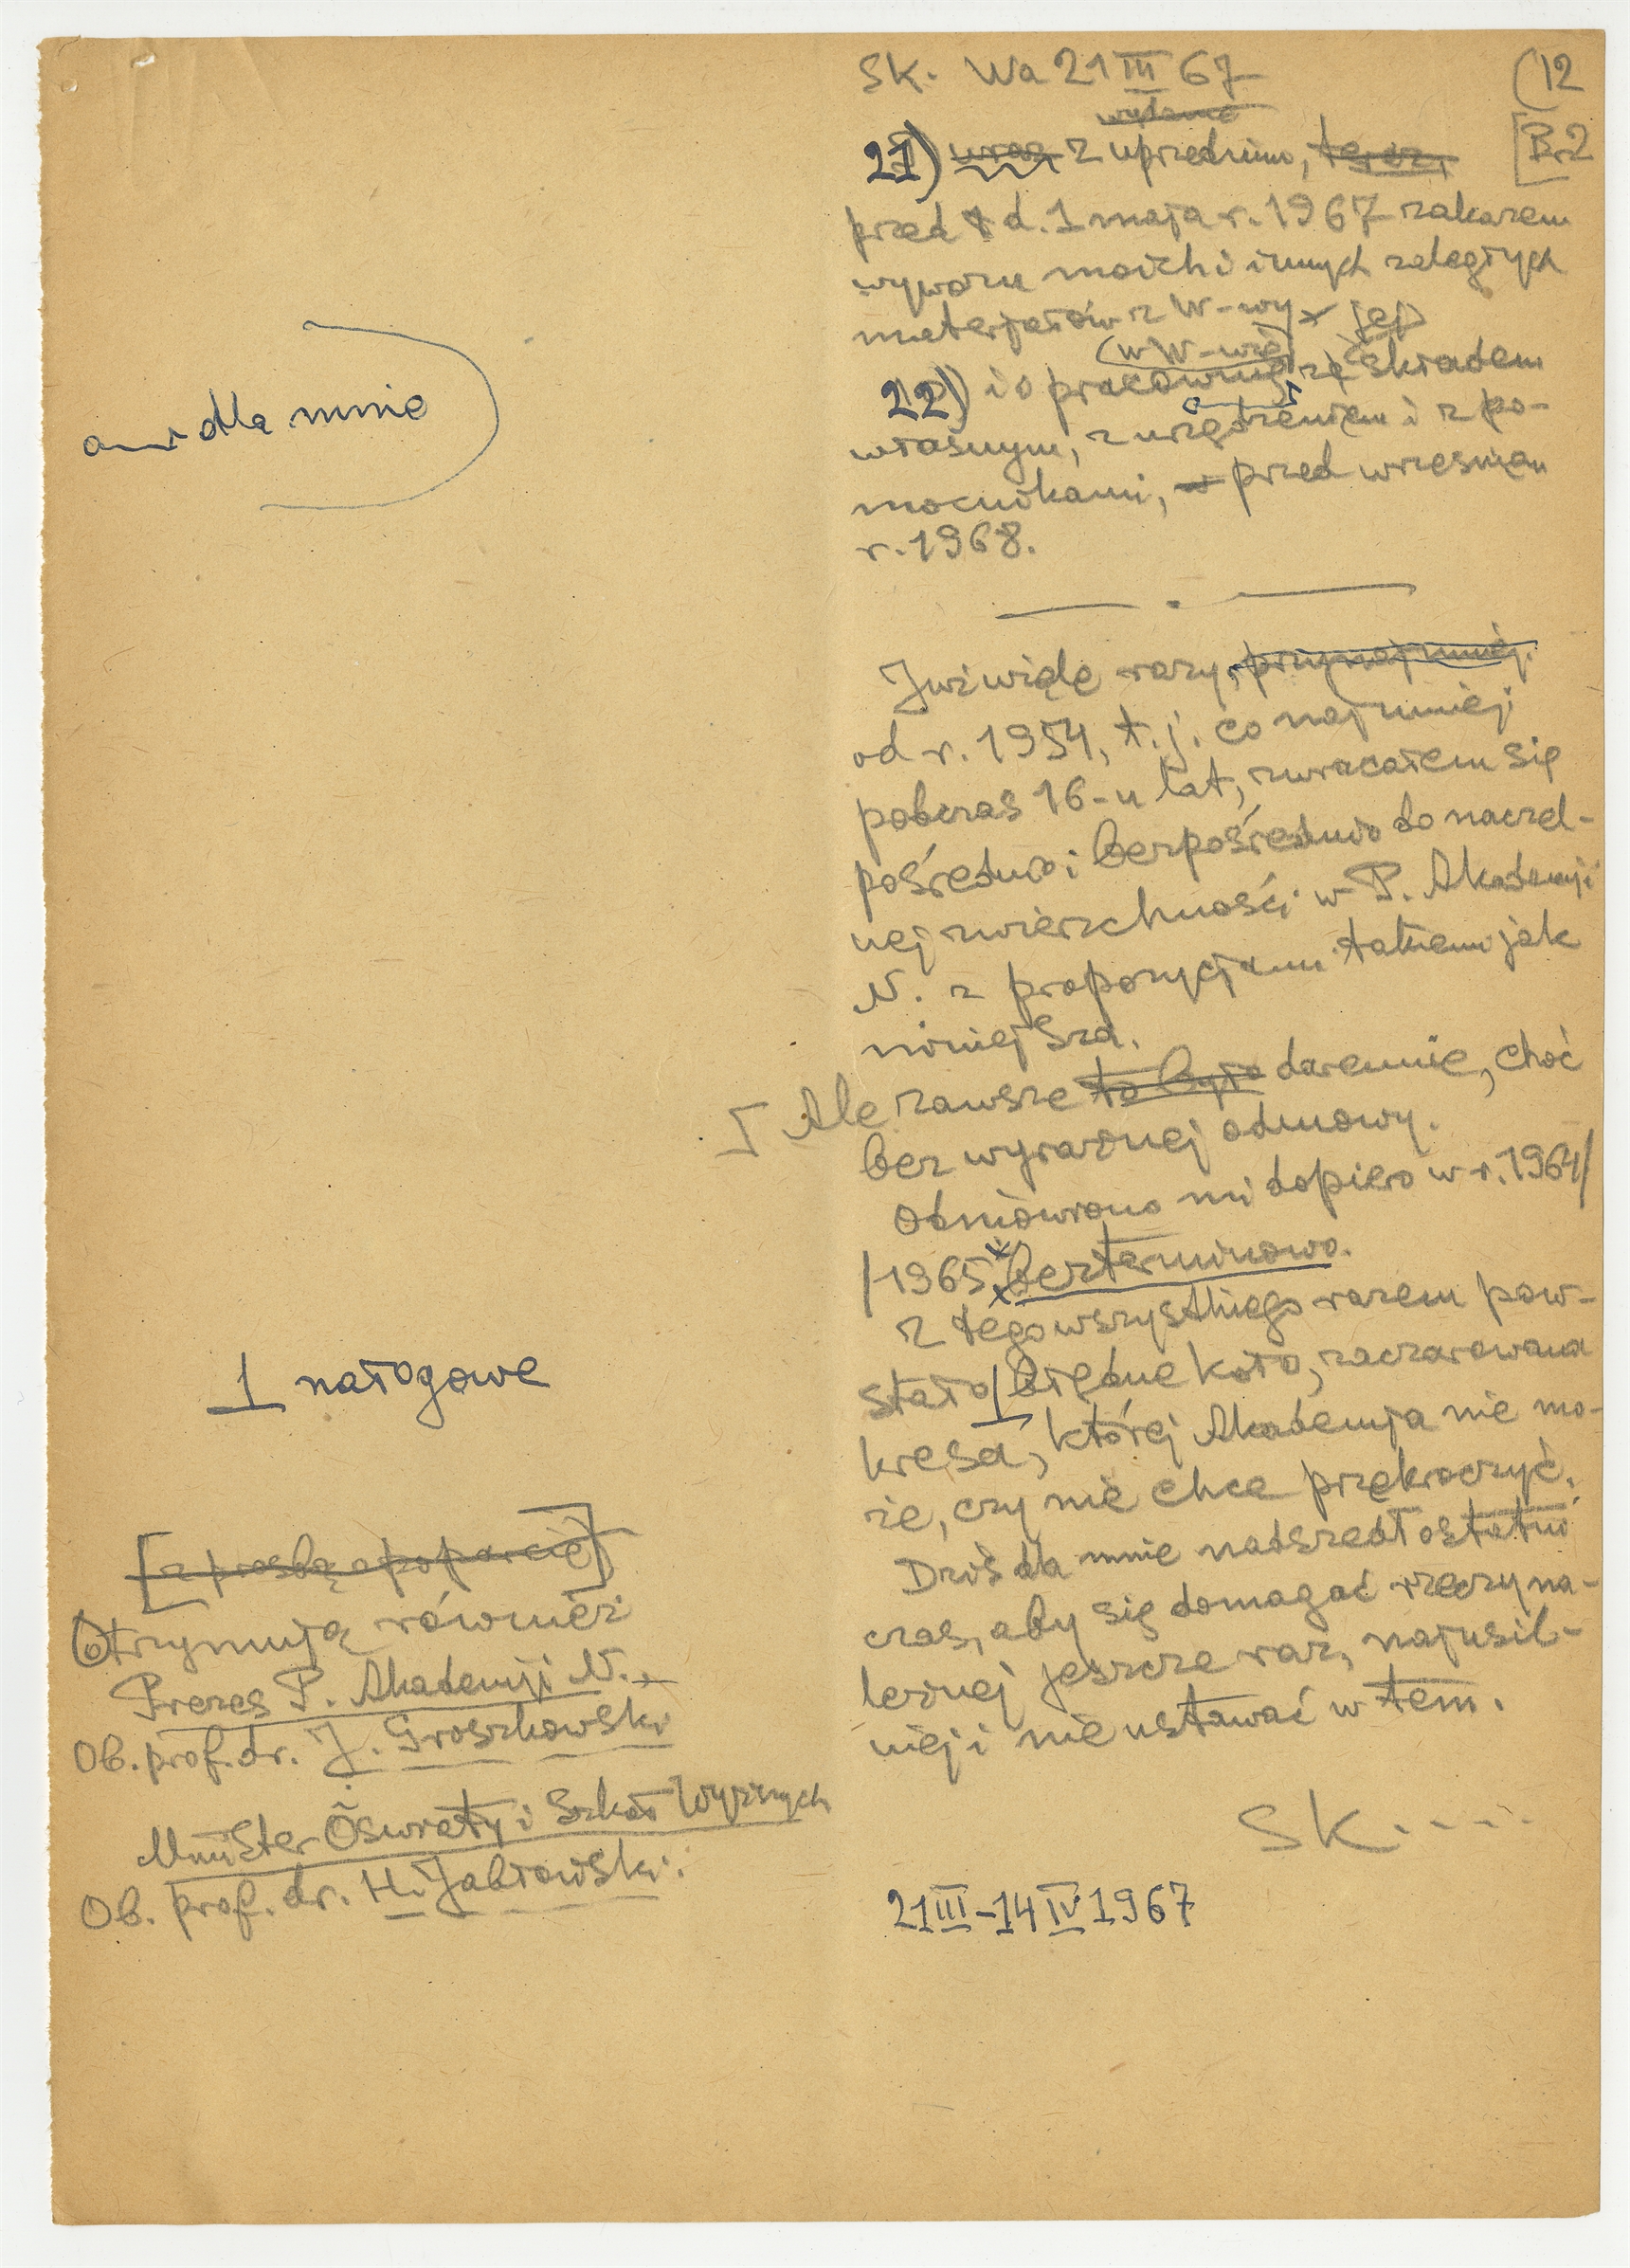 SK. Wa 21 III 67
(12
[Br2
wydane
21) wraz z uprzednim, teraz,
przed d. 1 maja r. 1967 zakazem
wywozu moich i innych zaległych
materjałów z W-wy
jej
(w W-wie)
22) i o pracownię ze składem
własnym, z urządzeniem i z po-
mocnikami, przed wrześniem
r. 1968.
dla mnie
Już wiele razy, przynajmniej.
od r. 1954, t.j. co najmniej
podczas 16-u lat, zwracałem się
pośrednio i bezpośrednio do naczel-
nej zwierzchności w P. Akademji
N. z propozycjami takiemi jak
niniejsza.
Ale zawsze to było daremnie, choć
bez wyraźnej odmowy.
Odmówiono mi dopiero w r. 1964/
/1965 bezterminowo.
Z tego wszystkiego razem pow-
stało błędne koło, zaczarowana
kresa, której Akademja nie mo-
że, czy nie chce przekroczyć.
Dziś dla mnie nadszedł ostatni
czas, aby się domagać rzeczy na-
leżnej jeszcze raz, najusil-
niej i nie ustawać w tem.
SK....
21 III - 14 IV 1967
1 nałogowe
[z prośbą o poparcie]
Otrzymują również
Prezes P. Akademji N.
Ob. prof. dr. J. Groszkowski
Minister Oświaty i Szkół Wyższych
Ob. prof. dr. H. Jabłoński.